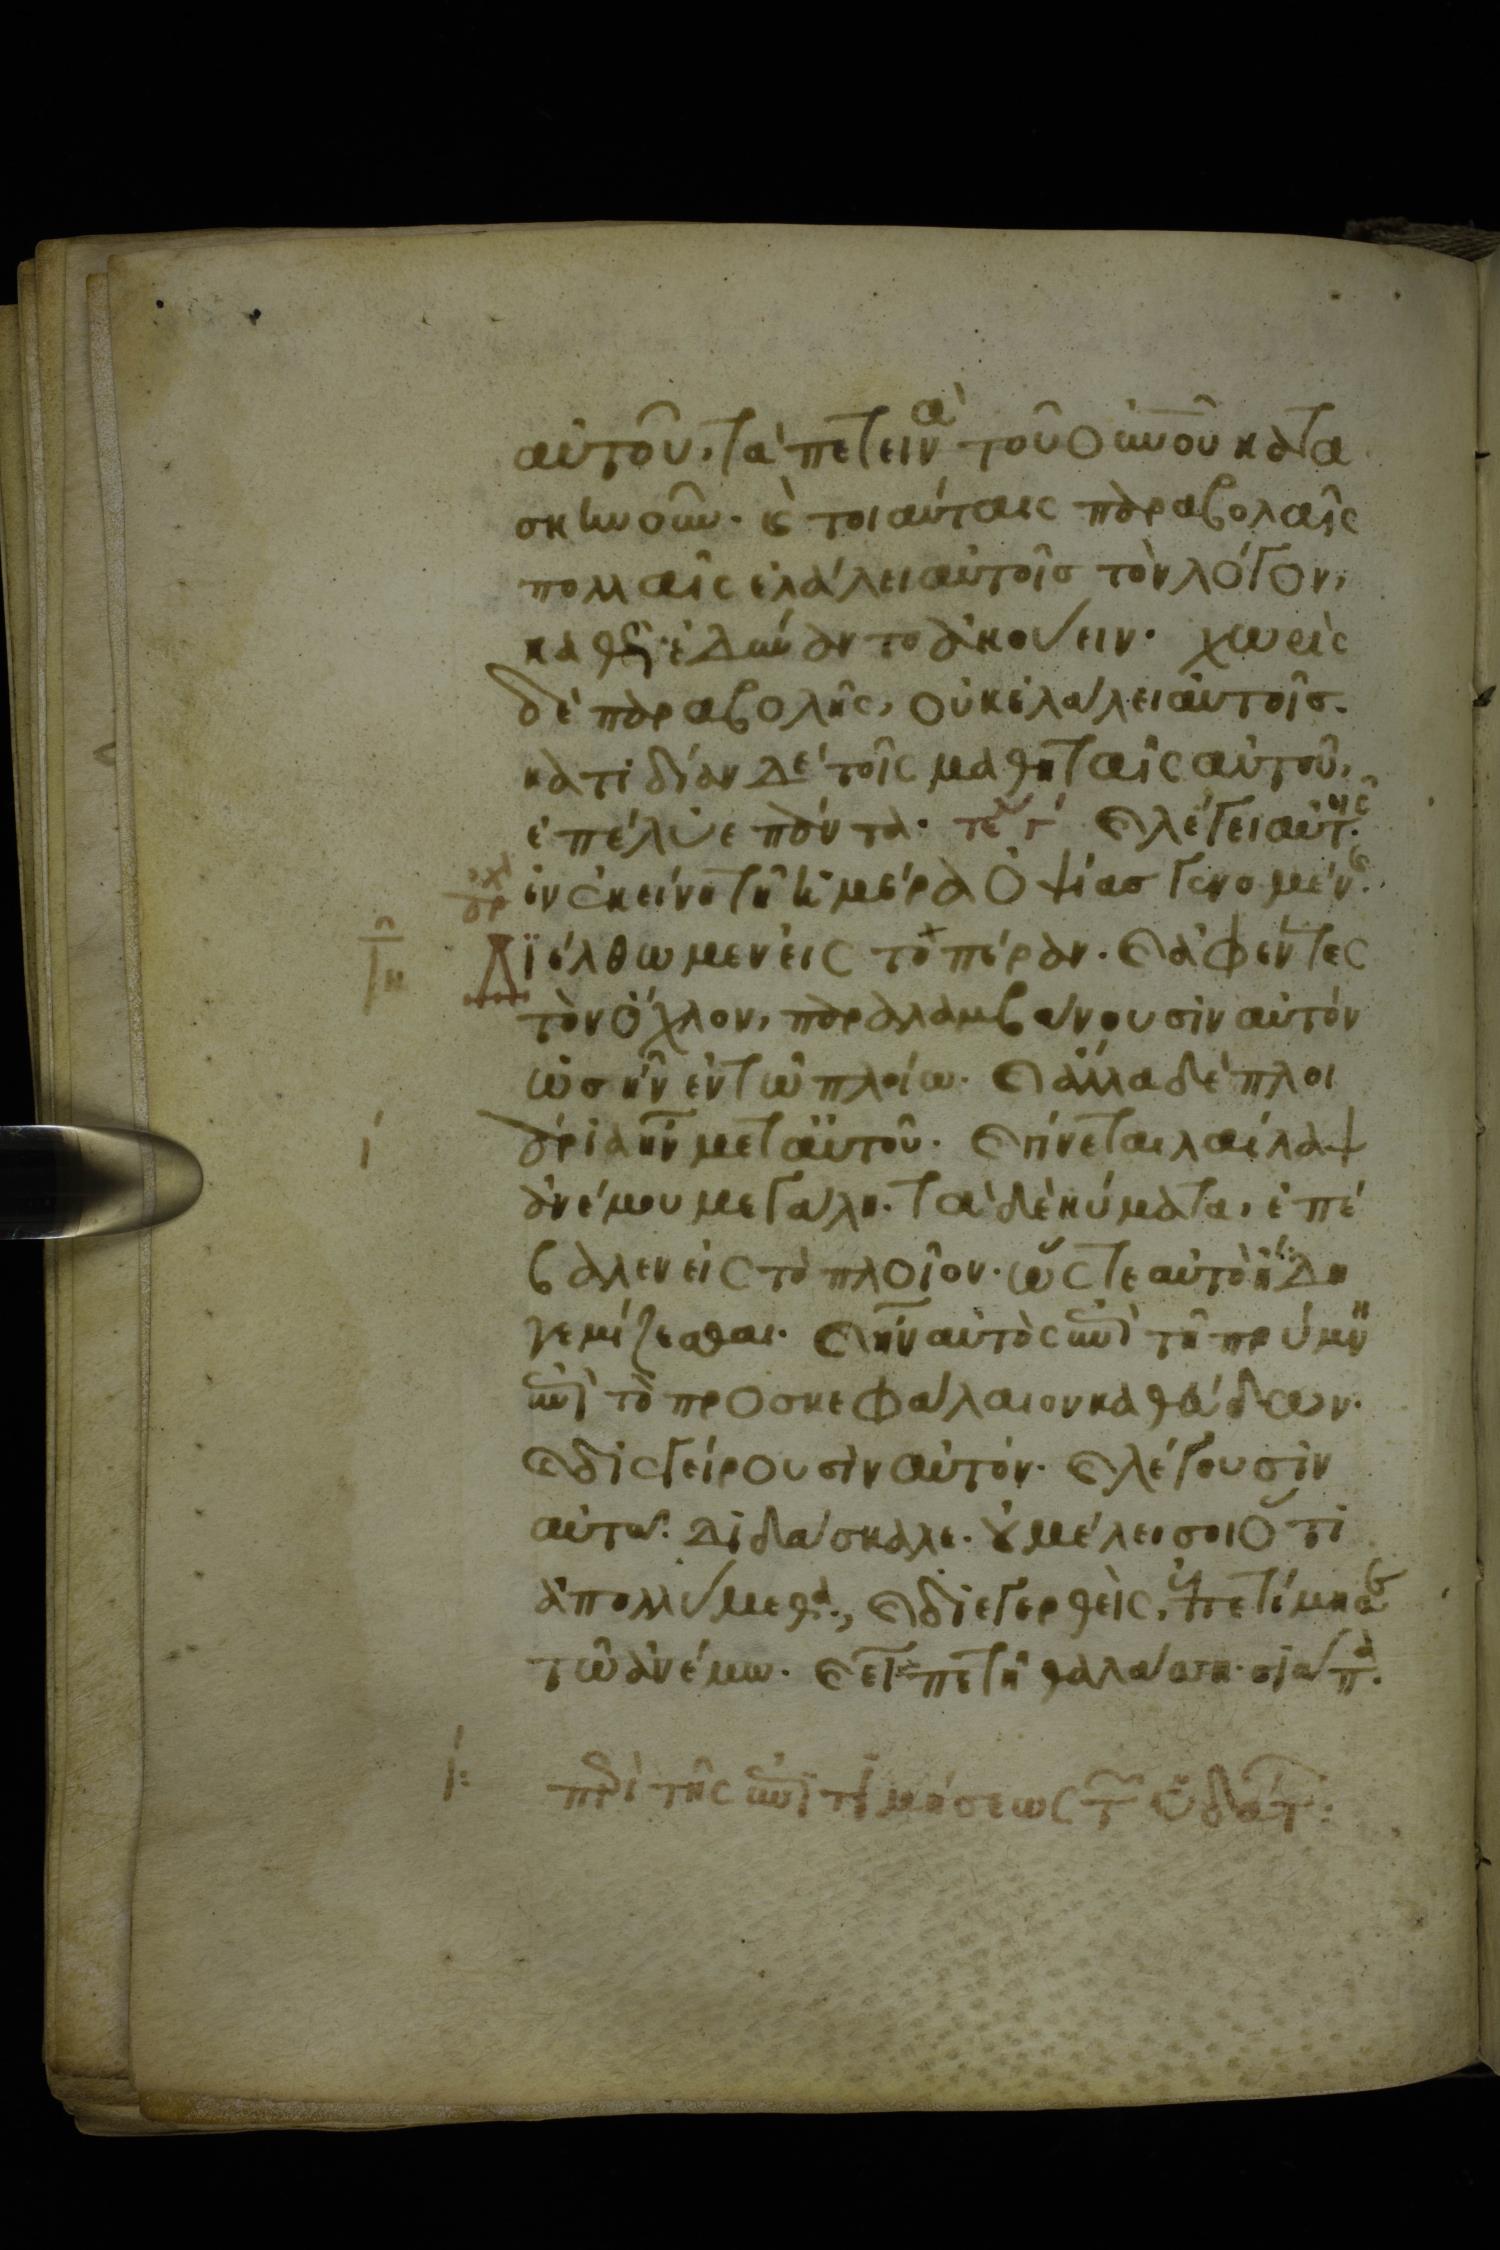 αὐτοῦ, τὰ πετεινὰ τοῦ οὐνοῦ κατα
σκηνοῦν. καὶ τοιαύταις παραβολαῖς
πολλαῖς ἐλάλει αὐτοῖσ τὸν λόγον,
καθὼς ἐδύναντο ἀκούειν. χωρὶς
δὲ παραβολῆς, οὐκ ἐλάλει αὐτοῖσ.
κατιδίαν δὲ τοῖς μαθηταῖς αὐτοῦ,
ἐπέλυε πάντα. τε γ καὶ λέγει αὐτοῖς
ἐν ἐκείνη τῆ ἡμέρα ὀψίασ γενομένης.
Διέλθωμεν εἰς τὸ πέραν. καὶ ἀφέντες
τὸν ὄχλον, παραλαμβάνουσιν αὐτόν
ὡσ ἦν ἐν τῶ πλοίω. καὶ ἄλλα δὲ πλοι
άρια ἦν μετ αὐτοῦ. καὶ γίνεται λαίλαψ
ἀνέμου μεγάλη. τὰ δὲ κύματα, ἐπέ
βαλεν εἰς τὸ πλοῖον. ὥστε αὐτὸ ἤδη
γεμίζεσθαι. καὶ ἦν αὐτὸς ἐπὶ τῆ πρύμνη
ἐπὶ τὸ προσκεφάλαιον καθεύδων.
καὶ διεγείρουσιν αὐτόν. καὶ λέγουσιν
αὐτῶ. διδάσκαλε. οὐ μέλει σοι ὅτι
ἀπολλύμεθα., καὶ διεγερθεὶς, ἐπετίμησε
τῶ ἀνέμω. καὶ εἶπε τῆ θαλάσση. σιώπα.
ι: περὶ τῆς ἐπιτιμήσεως τῶν ὑδάτων:
αρχ
γ
ι